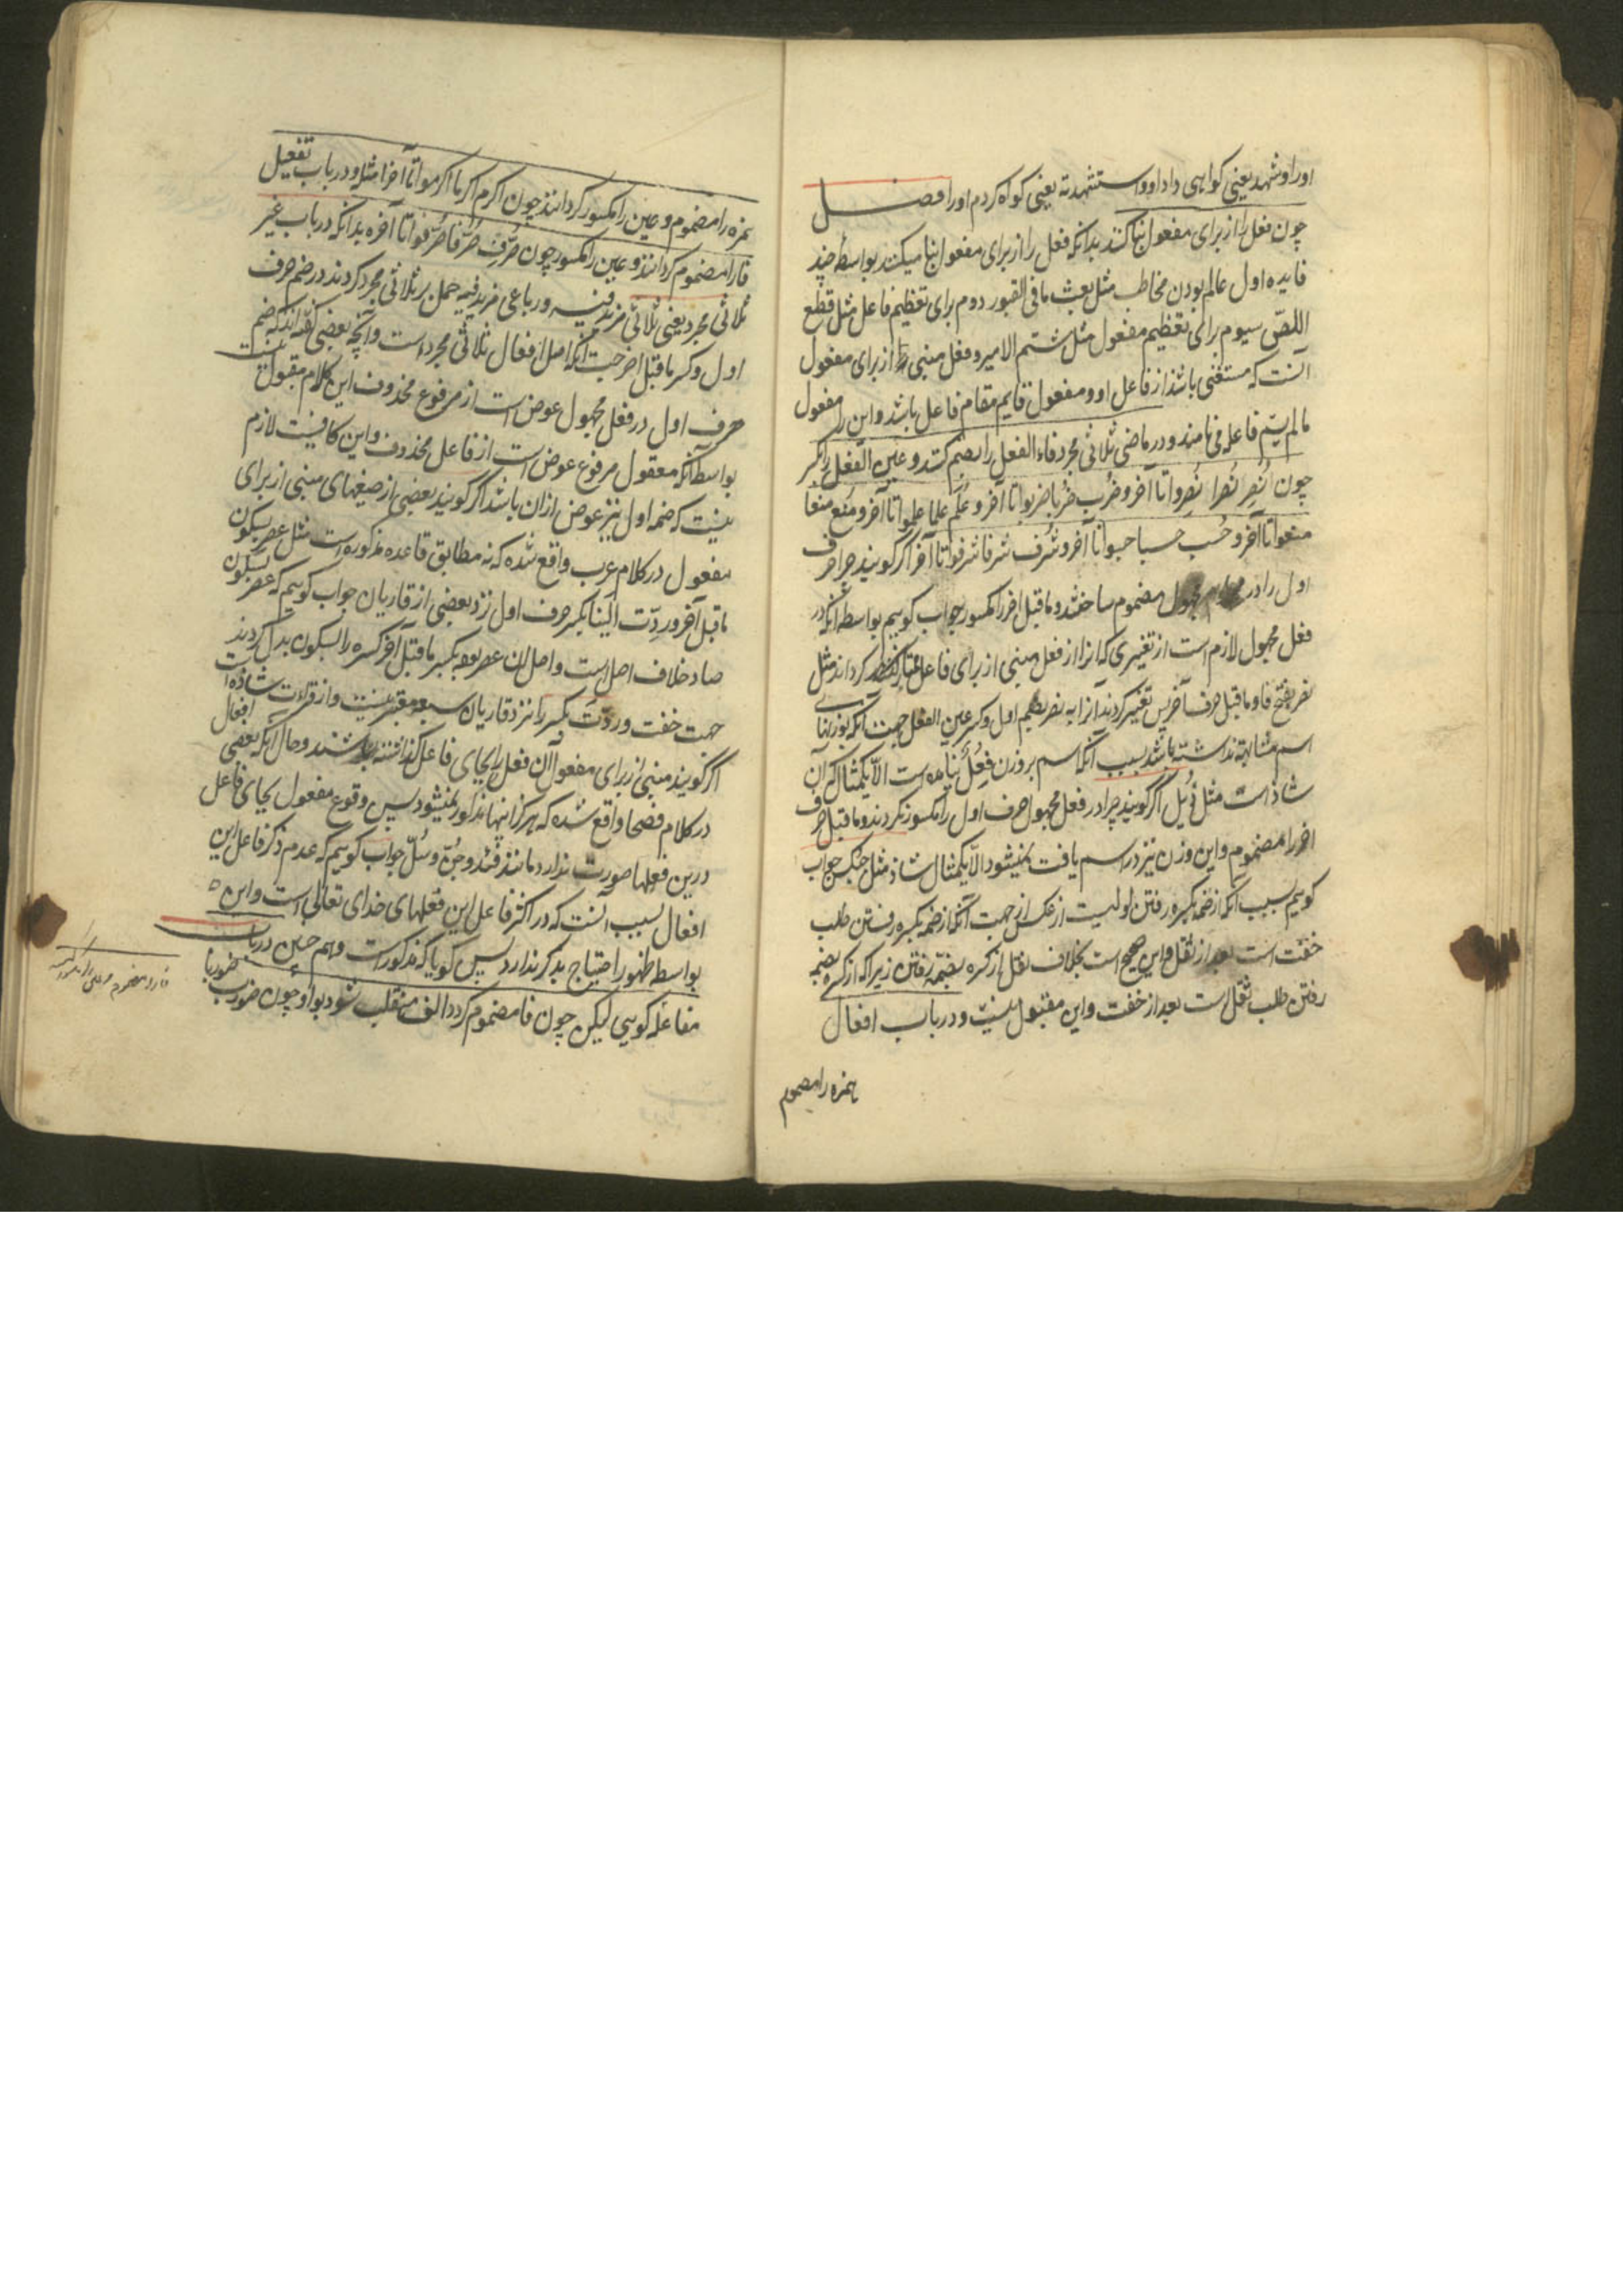 اورا و شهد یعنی کواهی داد او و استشهدته یعنی کواه کردم اورا فصل
چون فعل را از برای مفعول بنا کنند بدانکه فعل را از برای مفعول بنا میکنند بواسطهٔ چند
فایده اول عالم بودن مخاطب مثل بعث ما فی القبور دوم برای تعظیم فاعل مثل قطع
اللصّ سیوم برای تعظیم مفعول مثل شتم الامیر و فعل مبنی از برای مفعول
آنست که مستغنی باشد از فاعل او و مفعول قایم مقام فاعل باشد و این را مفعول
مالم یسمّ فاعله می نامند و در ماضی ثلاثی مجرد فاء الفعل را بضم کنند و عین الفعل را بکسر
چون نُصِرَ نُصِرا نُصِروا تا آخر و ضُرِب ضربا ضربوا تا آخر و عُلِم علما علموا تا آخر و مُنِع منعا
منعوا تا آخر و حُسِب حسبا حسبوا تا آخر و شُرِف شرفا شرفوا تا آخر اکر کویند چرا حرف
اول را در مجهول مضموم ساختند و ماقبل اخر را مکسور جواب کوییم بواسطه آنکه در
فعل مجهول لازم است از تغییری که انرا از فعل مبنی از برای فاعل کرداند مثل
نصر بفتح فا و ماقبل حرف آخر پس تغییر کردند آنرا به نصر بضم اول و کسر عین الفعل جهت آنکه بوزنهای
اسم مشابهة نداشته باشد بسبب آنکه اسم بر وزن فُعِلُ نیامده است الّا یکمثال که آن
شاذ است مثل دُئِل اکر کویند چرا در فعل مجهول حرف اول را مکسور نکردند و ماقبل حرف
اخر را مضموم و این وزن نیز در اسم یافت نمیشود الّا یکمثال شاذ مثل حبک جواب
کوییم بسبب آنکه از ضمه بکسره رفتن اولیست از عکس از جهت آنکه از ضمه بکسره رفتن طلب
خفت است بعد از ثقل و این صحیح است بخلاف نقل از کسره بضمه رفتن زیرا که از کسره بضمه
رفتن طلب ثقل است بعد از خفت و این مقبول نیست و در باب افعال
همزه را مضموم
همزه را مضموم و عین را مکسور کردانند چون اکرم اکرما اکرموا تا آخرها مثلا و در باب تفعیل
فا را مضموم کردانند و عین را مکسور چون صُرِّف صُرّفا صُرّفوا تا آخره بدانکه در باب غیر
ثلاثی مجرد یعنی ثلاثی مزید فیه و رباعی مزید فیه حمل بر ثلاثی مجرد کردند در ضم حرف
اول و کسر ماقبل اخر جهت آنکه اصل افعال ثلاثی مجرد است و آنچه بعضی کفته اند که ضم
حرف اول در فعل مجهول عوض است از مرفوع محذوف این کلام مقبول نیست
بواسطه آنکه معقول مرفوع عوض است از فاعل محذوف و این کافیست لازم
نیست که ضمه اول نیز عوض ازان باشد اکر کویند بعضی از صیغهای مبنی از برای
مفعول در کلام عرب واقع شده که نه مطابق قاعده مذکوره است مثل عصر بسکون
ماقبل آخر و ردّت الینا بکسر حرف اول نزد بعضی از قاریان جواب کوییم که عصر بسکون
صاد خلاف اصل است و اصل ان عصر بوده بکسر ماقبل آخر کسره را بسکون بدل کردند
جهت خفت و ردّت بکسر را نزد قاریان سبعه معتبر نیست و از قراءت شاذه است
اکر کویند مبنی از برای مفعول آن فعل را بجای فاعل کذاشته باشند و حال آنکه بعضی افعال
در کلام فصحا واقع شده که هرکز اینها مذکور نمیشود پس وقوع مفعول بجای فاعل
درین فعلها صورت ندارد مانند فئد و جُنّ و سُلّ جواب کوییم که عدم ذکر فاعل این
افعال بسبب آنست که در اکثر فاعل این فعلهای خدای تعالی است و این
بواسطه ظهور احتیاج بذکر ندارد پس کویا که مذکور است و همچنین در باب
مفاعله کویی لیکن چون فا مضموم کردد الف منقلب شود بواو چون ضورب ضوربا